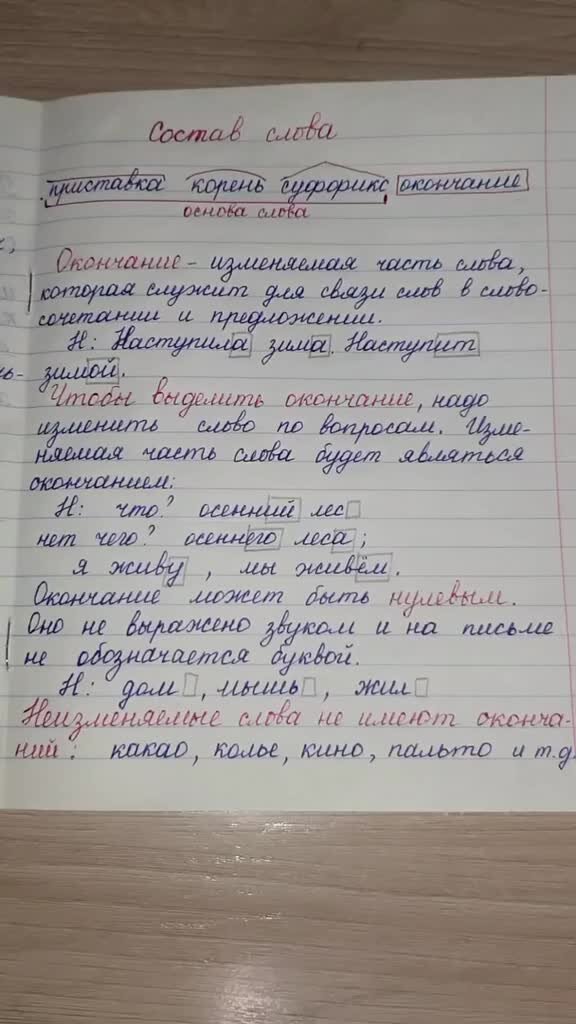 Состав слова
приставка корень суффикс окончание
основа слова
Окончание - изменяемая часть слова,
которая служит для связи слов в слово-
сочетании и предложении.
Н: Наступила зима. Наступит
зимой.
Чтобы выделить окончание, надо
изменить слово по вопросам. Изме-
няемая часть слова будет являться
окончанием:
Н: что? осенний лес
нет чего? осеннего леса;
я живу, мы живём.
Окончание может быть нулевым.
Оно не выражено звуком и на письме
не обозначается буквой.
Н: дом, мышь, жил
Неизменяемые слова не имеют оконча-
ний: какао, колье, кино, пальто и т.д.